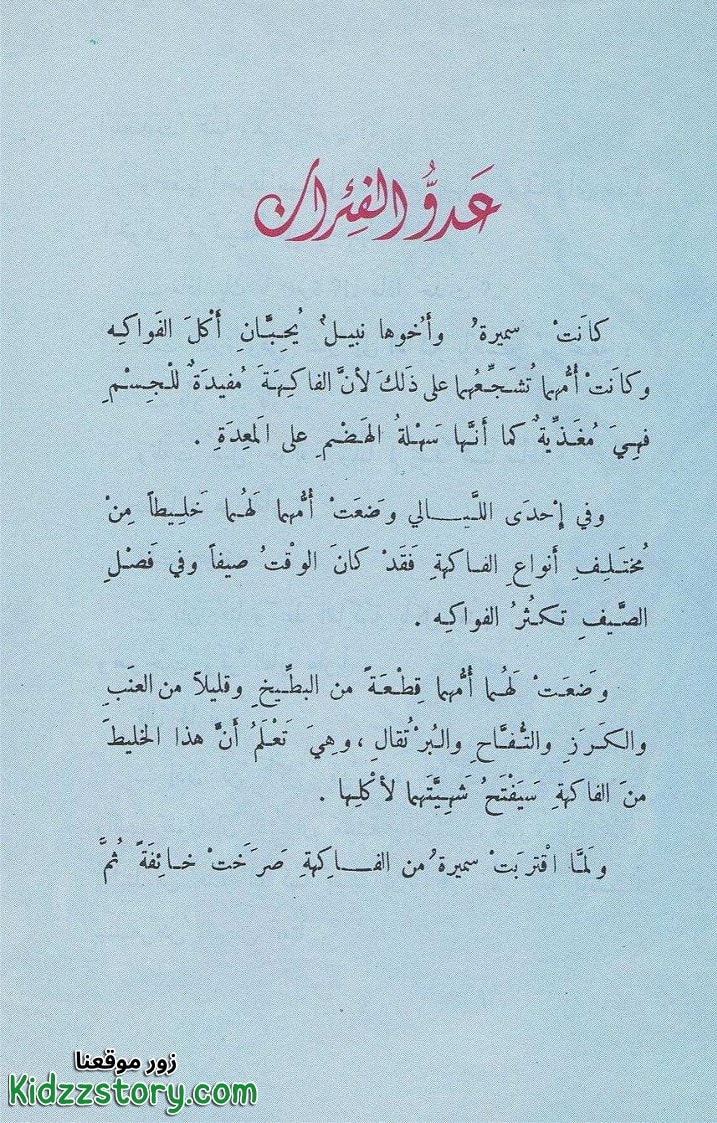 عَدوُّ الفِئران
كانَتْ سميرةُ وأَخوها نبيلٌ يُحِبَّانِ أَكْلَ الفَواكِه
وكانَتْ أُمُّهما تُشَجِّعُهما على ذَلكَ لأنَّ الفاكِهَةَ مُفيدَةٌ للْجِسْمِ
فهِيَ مُغَذِّيةٌ كما أَنَّها سَهْلةُ الهَضْمِ على المَعِدَةِ .
وفي إحْدَى الليـالي وَضَعَتْ أُمُّهما لَهُما خَليطاً مِنْ
مُختَلِفِ أنواعِ الفاكهةِ فقَدْ كانَ الوقْتُ صيفاً وفي فَصْلِ
الصَّيفِ تكثُرُ الفواكه .
وَضعَتْ لَهُما أُمُّهما قِطْعَةً من البطِّيخِ وقليلاً من العنَبِ
والكَرَزِ والتُّفَّاحِ والبُرْتُقالِ ، وهِيَ تَعْلَمُ أنَّ هذا الخليطَ
منَ الفاكهةِ سَيَفْتَحُ شَهِيَّتَهما لأكْلِها .
ولَمَّا اقْتربَتْ سميرةُ من الفـاكِهةِ صَرَخَتْ خـائِفَةً ثُمَّ
زور موقعنا
Kidzzstory.com